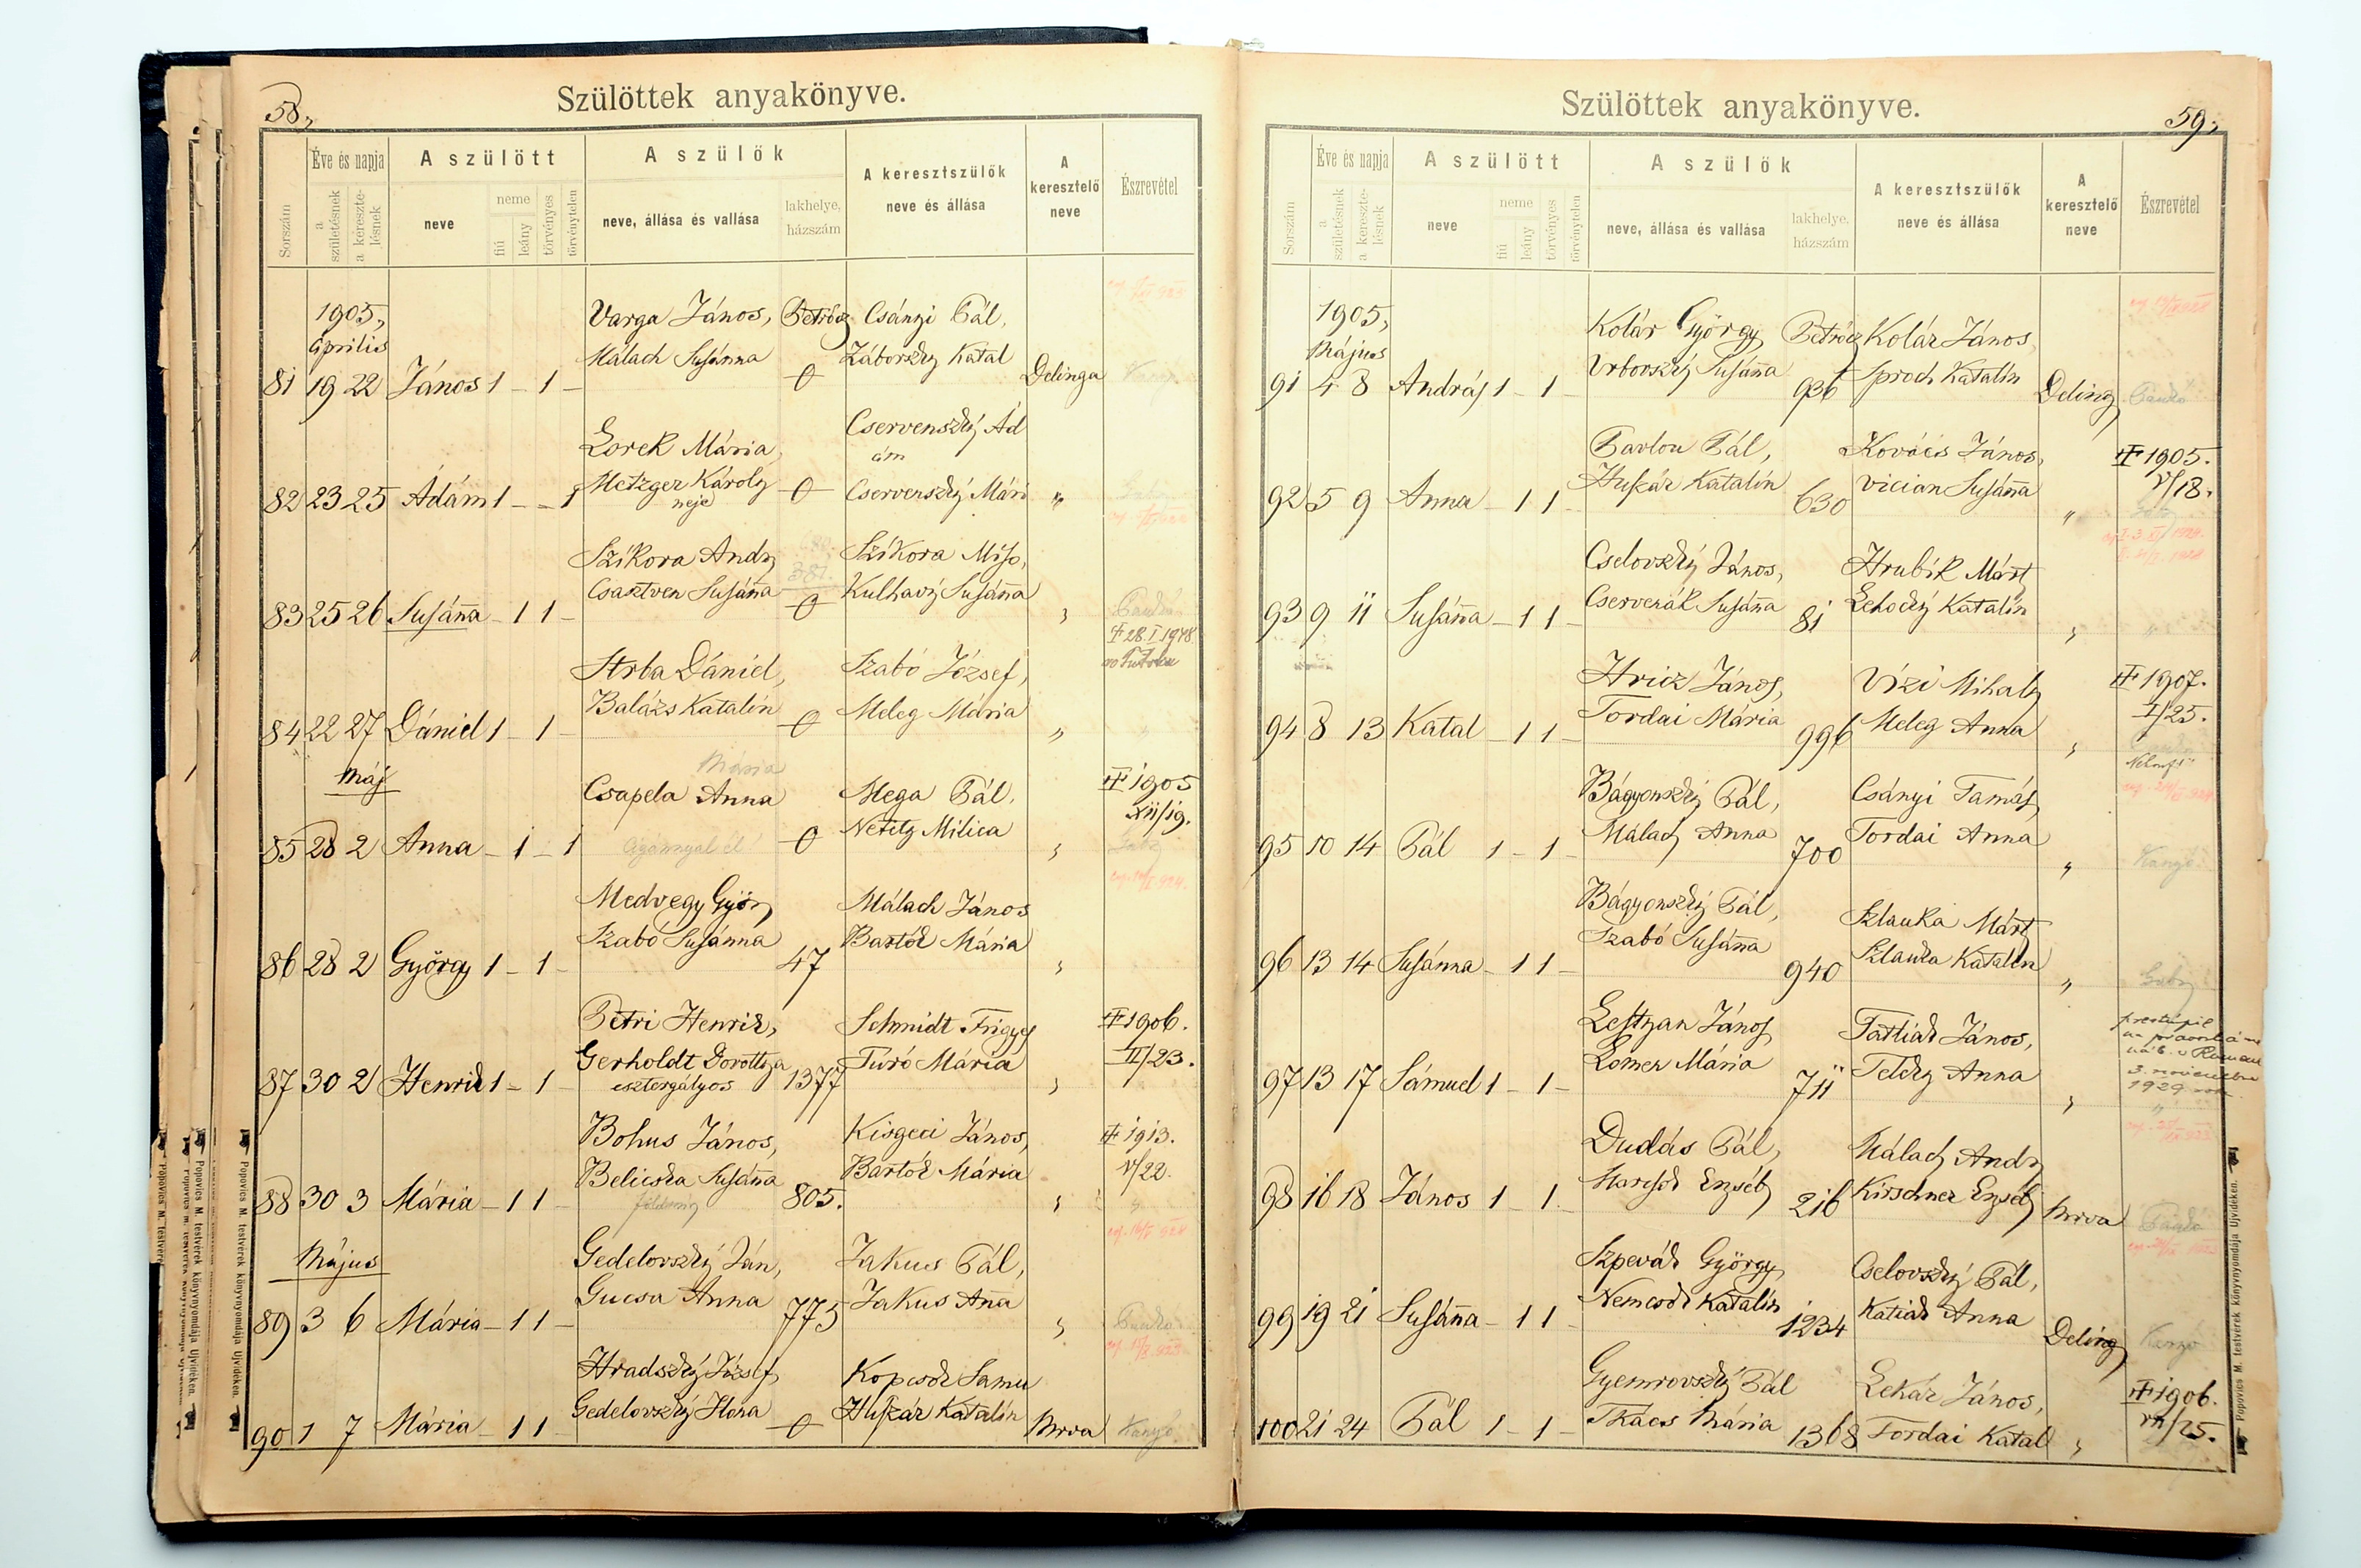 58,
Szülöttek anyakönyve.
Sorszám
Éve és napja
a születésnek
a keresztelésnek
A szülött
neve
neme
fiú
leány
törvényes
törvénytelen
A szülők
neve, állása és vallása
lakhelye, házszám
A keresztszülők
neve és állása
A keresztelő neve
Észrevétel
1905,
Április
Varga János, Petrőcz Csányi Pál,
Malach Susánna Záborszky Katal
81 19 22 János 1 - 1 - 0 Delinga
Lorek Mária, Cservenszký Ád
Metzger Károly ám
neje
82 23 25 Ádám 1 - - 1 0 Cservenszký Mári "
Szikora Andr Szikora Miso,
381.
Csasztven Susánna Kulhavý Susánna
83 25 26 Susánna - 1 1 - 0 "
28. I 1978.
Strba Dániel, Szabó József,
Balázs Katalin Meleg Mária
84 22 27 Dániel 1 - 1 - 0 "
Máj
Mária
Csapela Anna Mega Pál, 1905
XII/19.
85 28 2 Anna - 1 - 1 0 "
Medvegy György Málach János
Szabó Susánna Bartók Mária
86 28 2 György 1 - 1 - 47 "
Petri Henrik, Schmidt Frigyes 1906.
Gerholdt Dorottya Túró Mária II/23.
esztergályos
87 30 2 Henrik 1 - 1 - 1377 "
Bohus János, Kisgeci János, 1913.
Belicska Susánna Bartók Mária V/22.
88 30 3 Mária - 1 1 - 805. "
Május
Gedelovszký Ján, Jakus Pál,
Gucsa Anna Jakus Anna
89 3 6 Mária - 1 1 - 775 "
Hradszký József, Kopcsok Samu
Gedelovszký Ilona Huszár Katalin
90 1 7 Mária - 1 1 - 0 Mrva Kanyó
Popovics M. testvérek könyvnyomdája Ujvidéken.
59,
Szülöttek anyakönyve.
Sorszám
Éve és napja
a születésnek
a keresztelésnek
A szülött
neve
neme
fiú
leány
törvényes
törvénytelen
A szülők
neve, állása és vallása
lakhelye, házszám
A keresztszülők
neve és állása
A keresztelő neve
Észrevétel
1905,
Május
Kolár György Petrőcz Kolár János
Vrbovszký Susánna Sproch Katalin
91 4 8 András 1 - 1 - 936 Deling
Pavlou Pál, Kovács János, 1905.
Huszár Katalin Vician Susánna V/18.
92 5 9 Anna - 1 1 - 630 "
Cselovszký János, Hrubik Márt
Cservenák Susánna Lehocký Katalin
93 9 11 Susánna - 1 1 - 81 "
Hricz János, Vizi Mihály 1907.
Tordai Mária Meleg Anna I/25.
94 8 13 Katal - 1 1 - 996 "
Bágyonszký Pál, Csányi Tamás,
Málach Anna Tordai Anna
95 10 14 Pál 1 - 1 - 700 " Kanyó
Bágyonszký Pál, Szlauka Márt
Szabó Susánna Szlauka Katalin
96 13 14 Susánna - 1 1 - 940 "
Lestyan János Tatliak János,
Lomen Mária Teleky Anna
3. novembra
1929
97 13 17 Sámuel 1 - 1 - 711 "
Dudás Pál, Málach Andr
Harcsok Erzséb Kirschner Erzséb
98 16 18 János 1 - 1 - 216 Mrva
Szpevák György Cselovszký Pál,
Nemcsok Katalin Katiak Anna
99 19 21 Susánna - 1 1 - 1234 Deling Kanyó
Gyemrovszký Pál Lekár János, 1906.
Tkács Mária Tordai Katal VII/25.
100 21 24 Pál 1 - 1 - 1368 "
Popovics M. testvérek könyvnyomdája Ujvidéken.